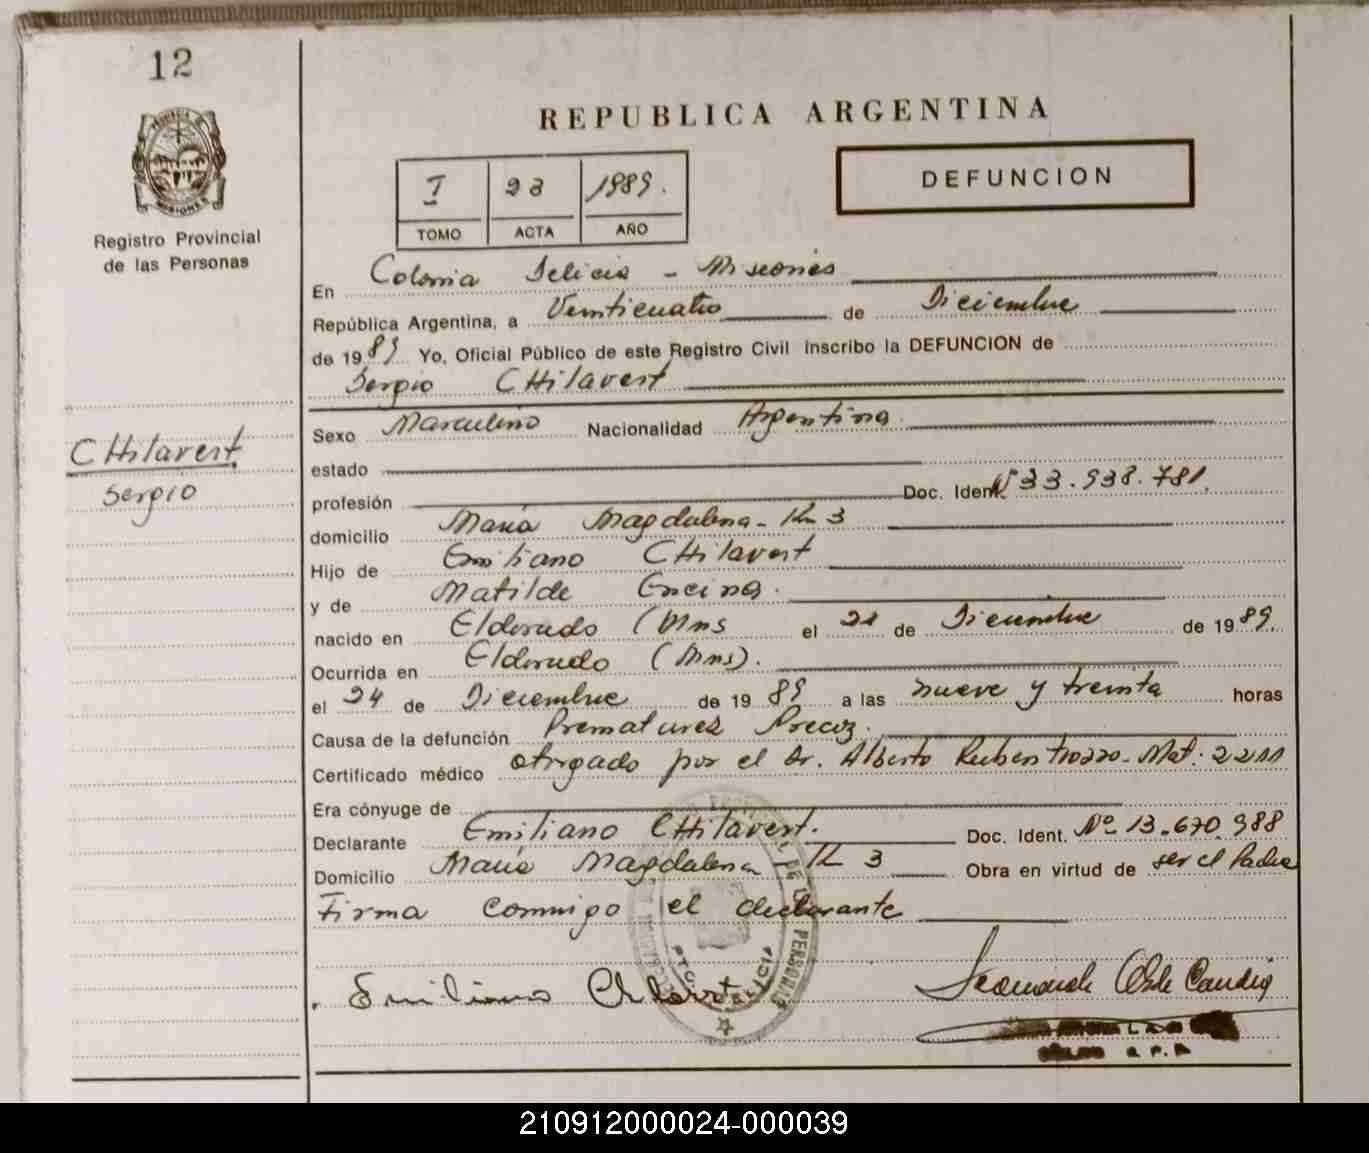 12
REPUBLICA ARGENTINA
DEFUNCION
I 1989.
TOMO ACTA AÑO
Registro Provincial
de las Personas
MISIONES
En Colonia Delicia - Misiones
República Argentina, a Veinticuatro de Diciembre
de 1989 Yo, Oficial Público de este Registro Civil inscribo la DEFUNCION de
Sergio CHilavert
CHilavert
Sergio
Sexo Masculino Nacionalidad Argentina.
estado
profesión Doc. Ident. Nº 33.938.781.
domicilio María Magdalena - Km 3
Hijo de Emiliano CHilavert
y de Matilde Encina.
nacido en Eldorado (Mns el de Diciembre de 1989.
Ocurrida en Eldorado (Mns).
el 24 de Diciembre de 1989 a las nueve y treinta horas
Causa de la defunción Prematurez Precoz.
Certificado médico otorgado por el Dr. Alberto Ruben Mat. 2211
Era cónyuge de
Declarante Emiliano CHilavert. Doc. Ident. Nº 13.670.988
Domicilio María Magdalena - K 3 Obra en virtud de ser el Padre
Firma conmigo el declarante
Emiliano